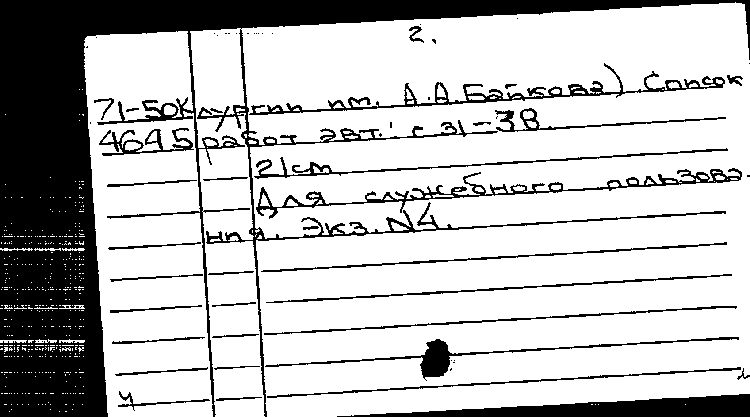 2.
71-50К лургии им. А.А.Байкова) Список
4645 работ авт.: с 31-38.
21см
Для служебного пользова-
ния. Экз. N4.
ч